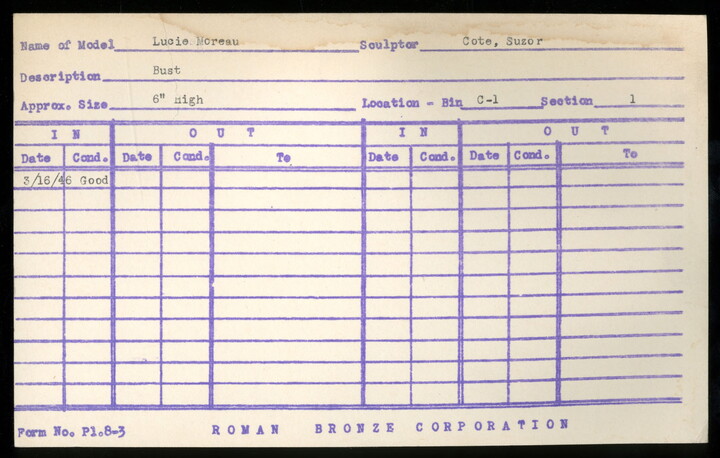 Name of Model Lucie Moreau Sculptor Cote, Suzor
Description Bust
Approx. Size 6" High Location - Bin C-1 Section 1
I N O U T I N O U T
Date Cond. Date Cond. To Date Cond. Date Cond. To
3/16/46 Good
Form No. Pl.8-3 ROMAN BRONZE CORPORATION